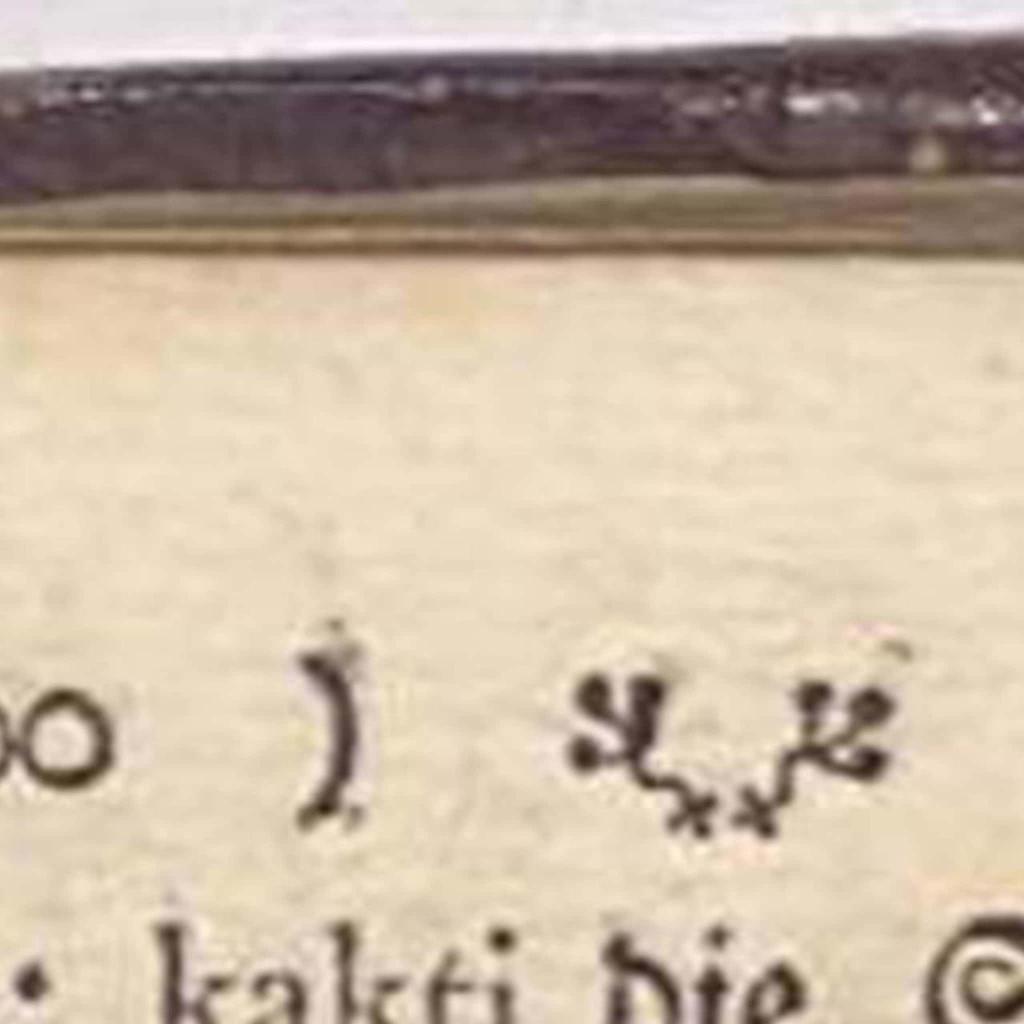 )
· kakti die